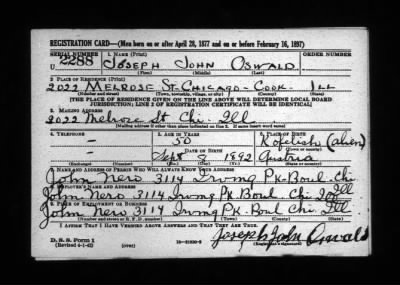 REGISTRATION CARD—(Men born on or after April 28, 1877 and on or before February 16, 1897)
SERIAL NUMBER 1. NAME (Print) ORDER NUMBER
U 2288 JOSEPH JOHN OSWALD
(First) (Middle) (Last)
2. PLACE OF RESIDENCE (Print)
2022 MELROSE ST- CHICAGO - COOK - ILL
(Number and street) (Town, township, village, or city) (County) (State)
[THE PLACE OF RESIDENCE GIVEN ON THE LINE ABOVE WILL DETERMINE LOCAL BOARD
JURISDICTION; LINE 2 OF REGISTRATION CERTIFICATE WILL BE IDENTICAL]
3. MAILING ADDRESS
2022 Melrose St Chi - Ill
[Mailing address if other than place indicated on line 2. If same insert word same]
4. TELEPHONE 5. AGE IN YEARS 6. PLACE OF BIRTH
— 50 (alien)
DATE OF BIRTH (Town or county)
— Sept 8 1892 Austria
(Exchange) (Number) (Mo.) (Day) (Yr.) (State or country)
7. NAME AND ADDRESS OF PERSON WHO WILL ALWAYS KNOW YOUR ADDRESS
John Nero 3114 Irving Pk - Boul - Chi Ill
8. EMPLOYER'S NAME AND ADDRESS
John Nero 3114 Irving Pk. Boul - Chi Ill
9. PLACE OF EMPLOYMENT OR BUSINESS
John Nero 3114 Irving Pk. Boul Chi. Ill
(Number and street or R. F. D. number) (Town) (County) (State)
I AFFIRM THAT I HAVE VERIFIED ABOVE ANSWERS AND THAT THEY ARE TRUE.
D. S. S. Form 1
(Revised 4-1-42) (over) Joseph John Oswald
(Registrant's signature)